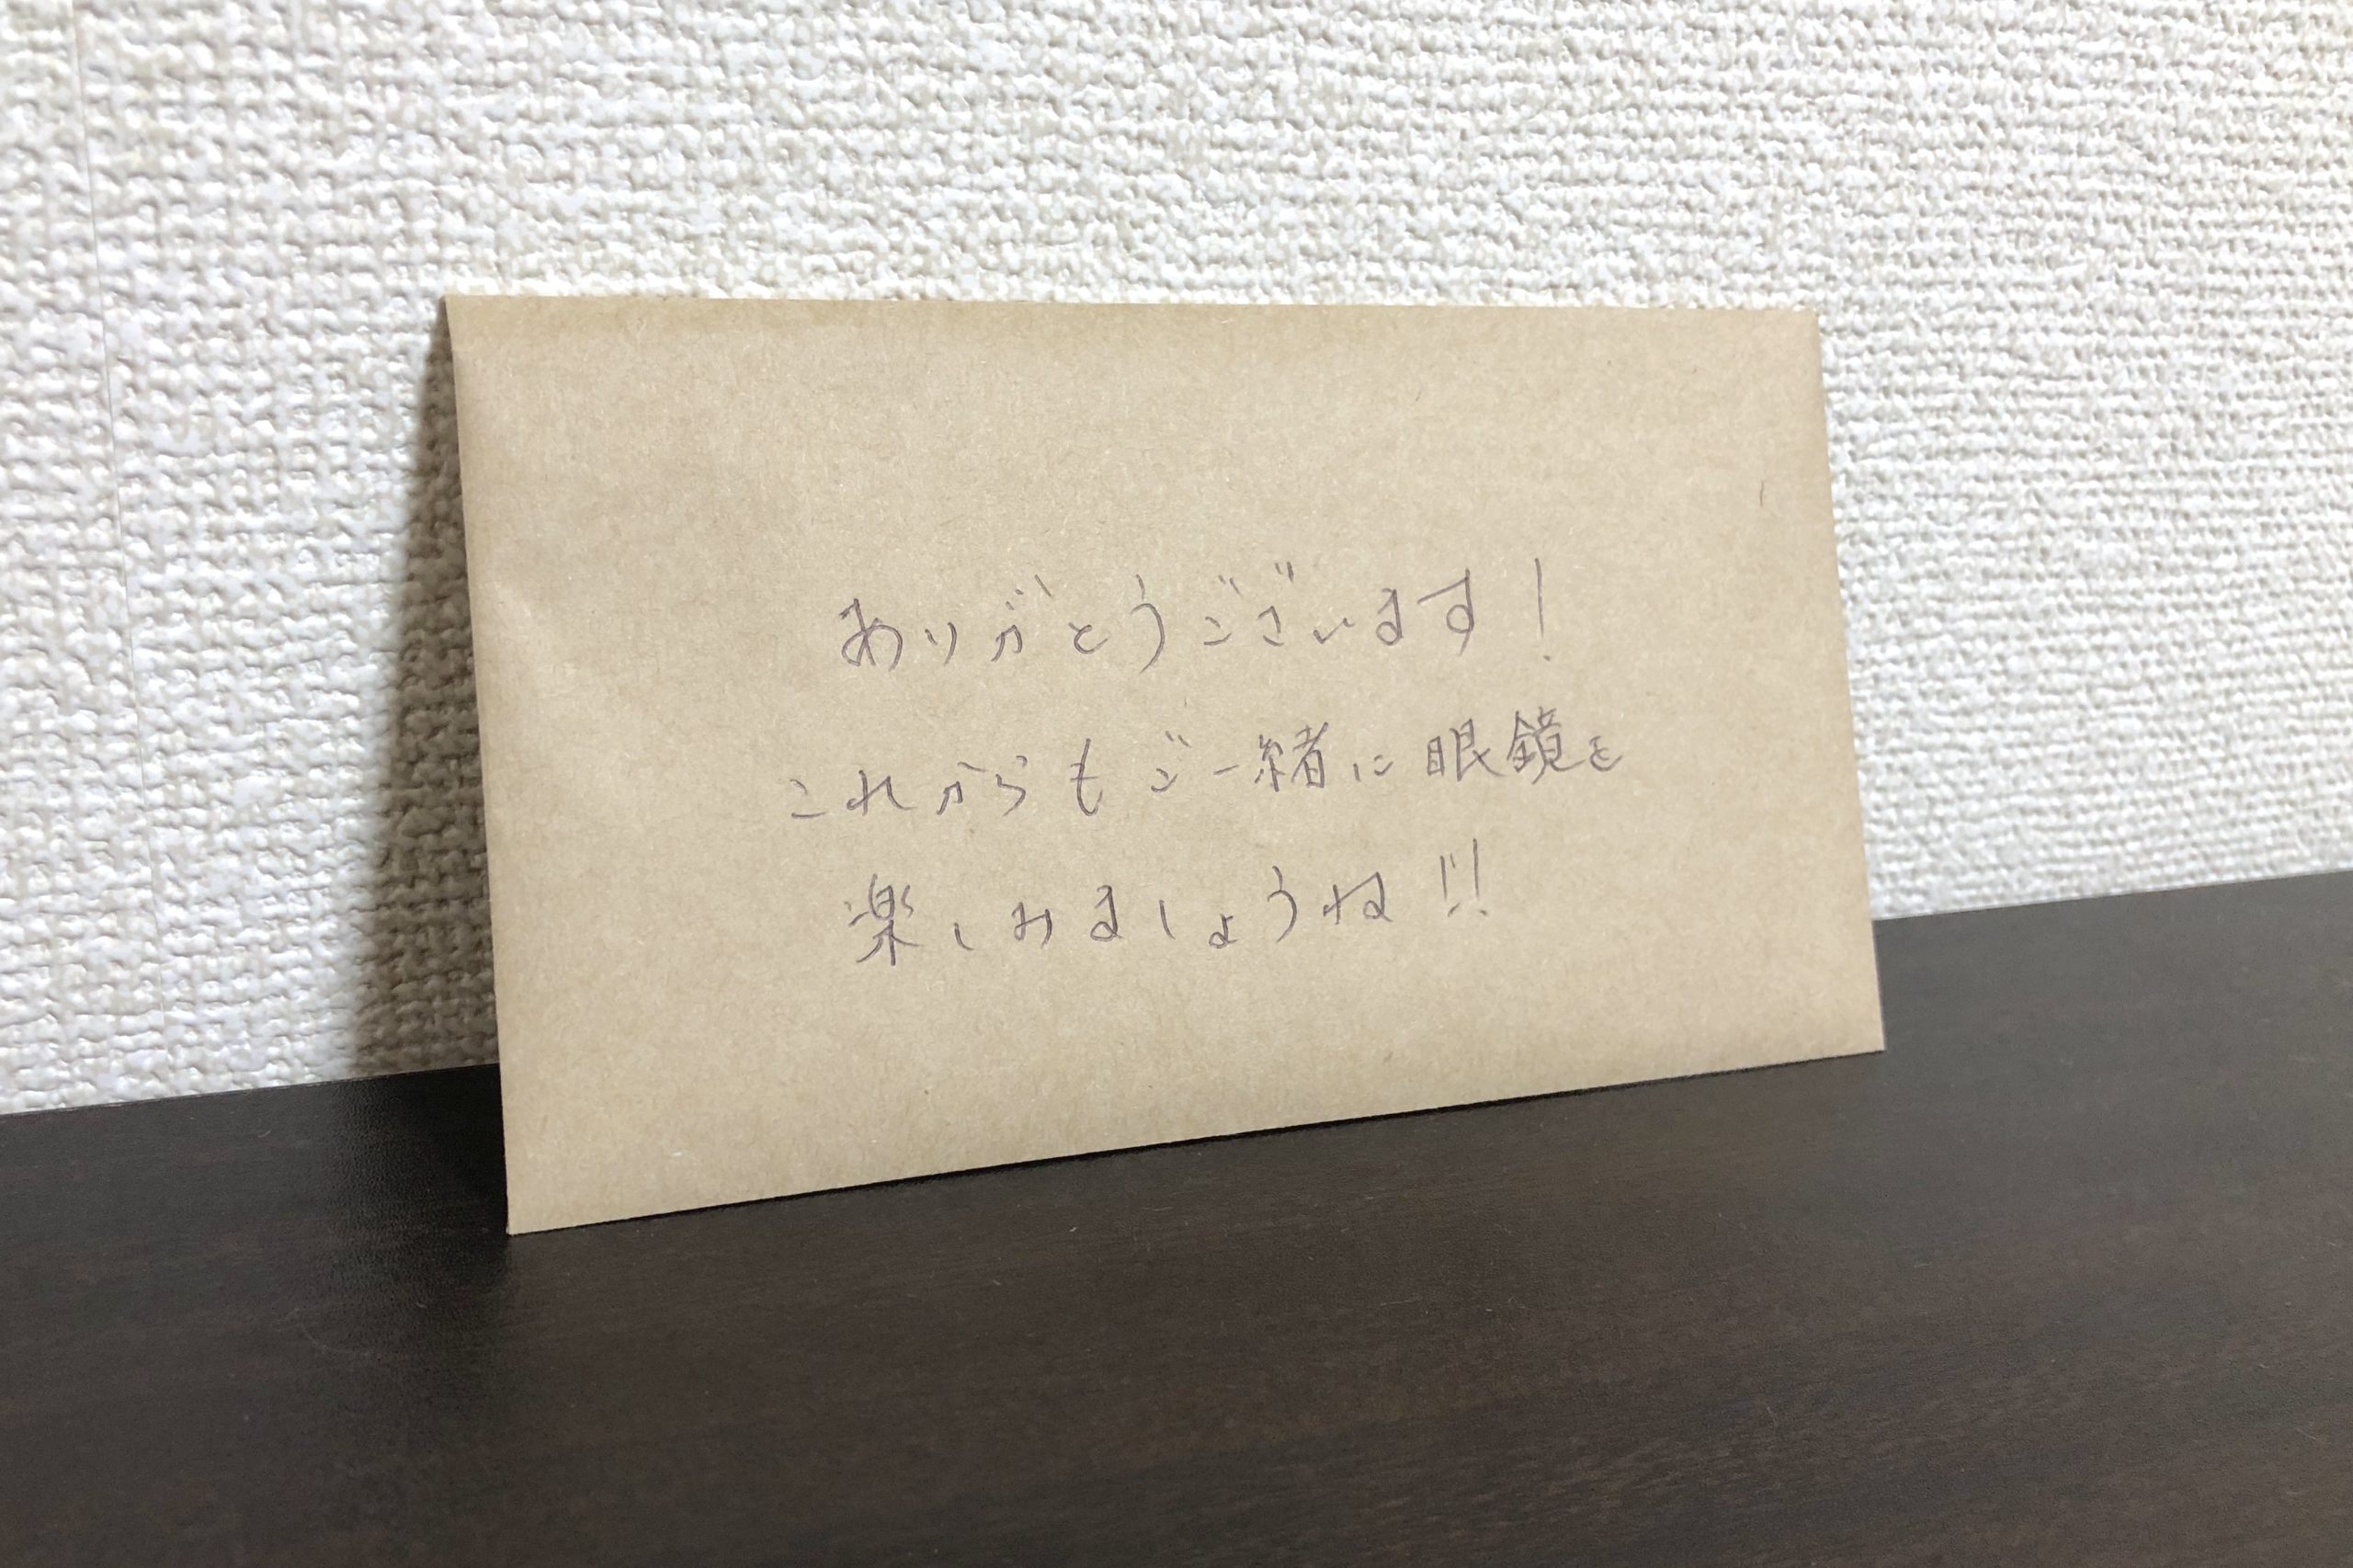 ありがとうございます！
これからもご一緒に眼鏡を
楽しみましょうね!!